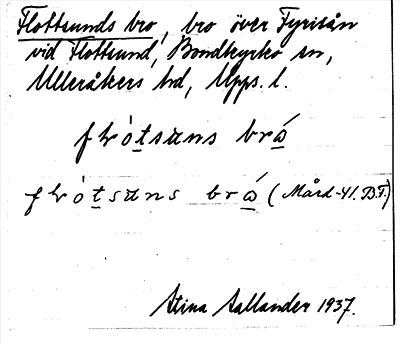 Flottsunds bro, bro över Fyrisån
vid Flottsund, Bondkyrko sn,
Ulleråkers hd, Upps. l.
(Mård -41. D.F.)
Stina Sallander 1937.